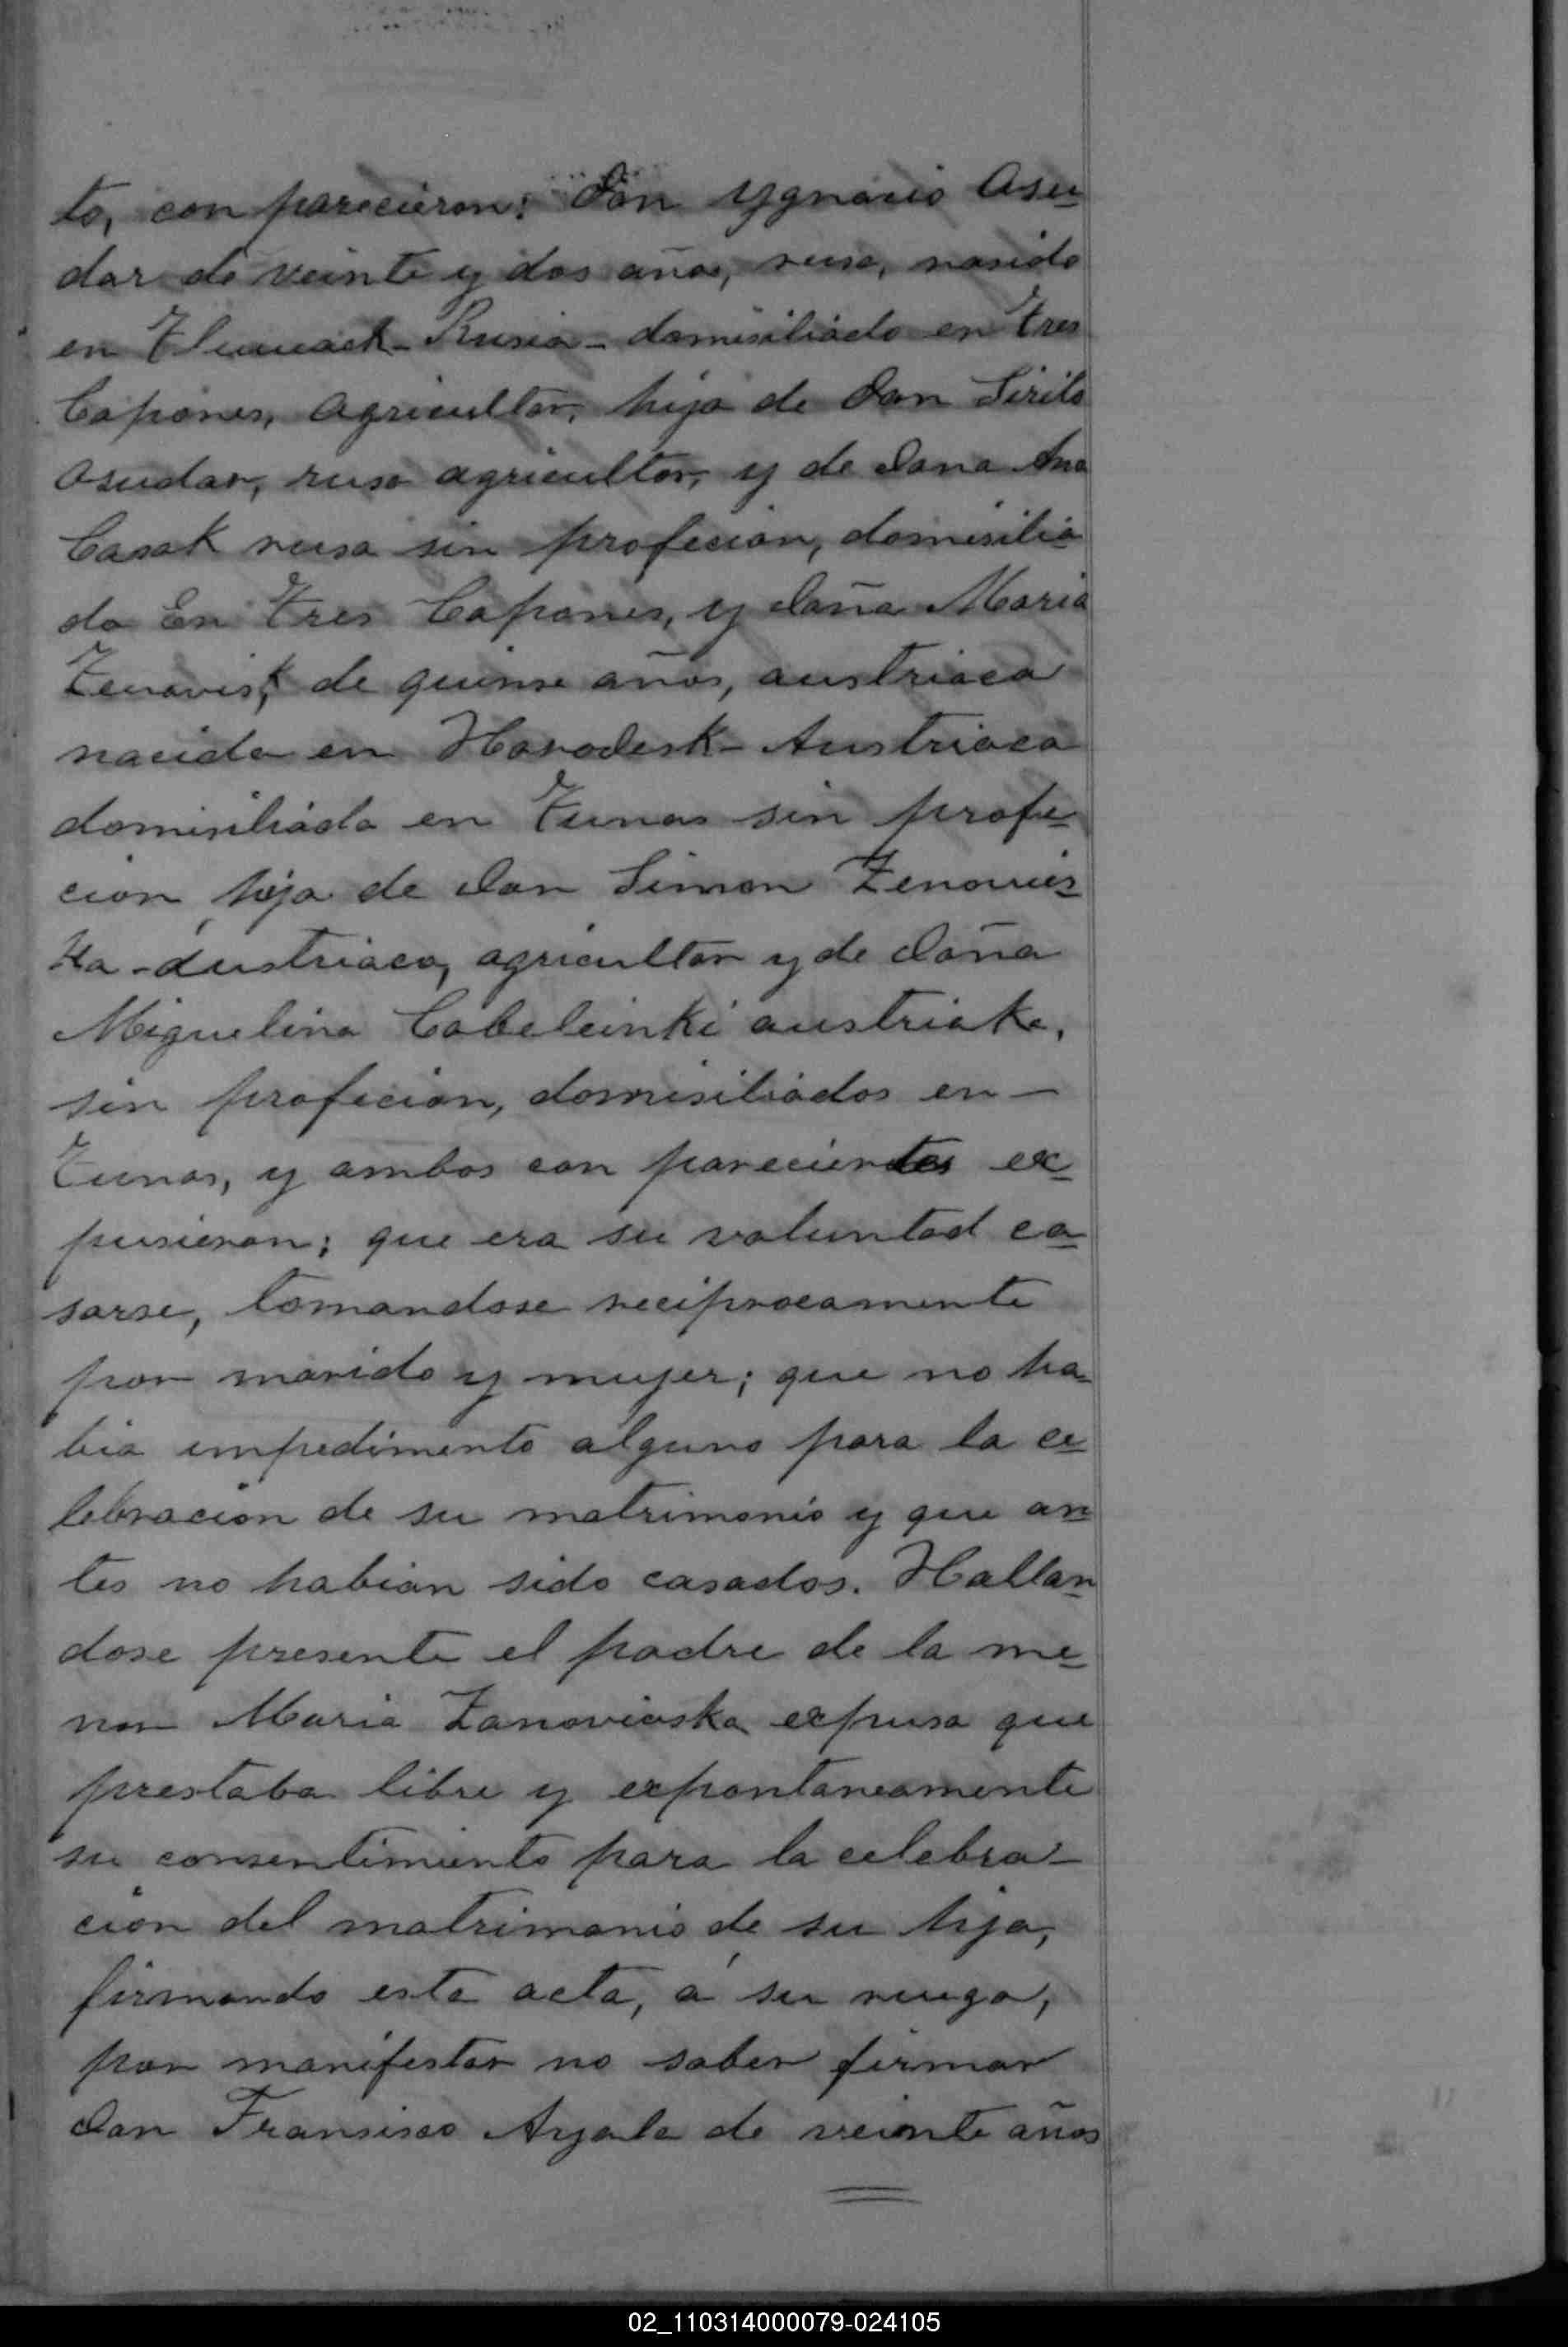 to, con parecieron: Don Ygnacio Asu-
dar de veinte y dos años, ruso, nasido
en Tlumach - Rusia - domisiliado en Tres
Capones, agricultor, hijo de Don Sirilo
Asudar, ruso agricultor, y de Dona Ana
Casak rusa sin profecion, domisilia
do En Tres Capones, y Doña Maria
Zenovisk, de quinse años, austriaca
nacida en Horodesk - Austriaca
domisiliada en Tunas sin profe-
cion, hija de Don Simon Zenovies-
ka - austriaco, agricultor y de Doña
Miguelina Cobeleinki austriaka,
sin profecion, domisiliados en -
Tunas, y ambos con parecientes ex-
pusieron; que era su voluntad ca-
sarse, tomandose reciprocamente
por marido y mujer; que no ha-
bia impedimento alguno para la ce-
lebracion de su matrimonio y que an-
tes no habian sido casados. Hallan-
dose presente el padre de la me-
nor Maria Zanovieska expuso que
prestaba libre y expontaneamente
su consentimiento para la celebra-
cion del matrimonio de su hija,
firmando esta acta, á su ruego,
por manifestar no saber firmar
Don Fransisco Ayala de veinte años
02_110314000079-024105